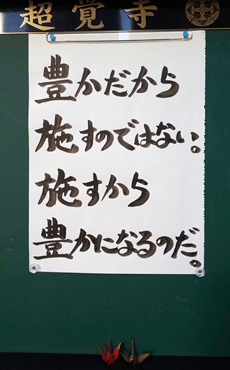 超覚寺
豊かだから
施すのではない。
施すから
豊かになるのだ。